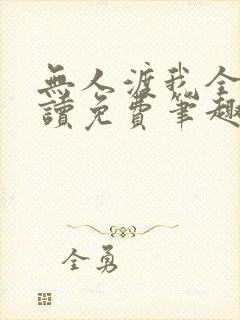 無人渡我全
讀免費筆趣
全勇